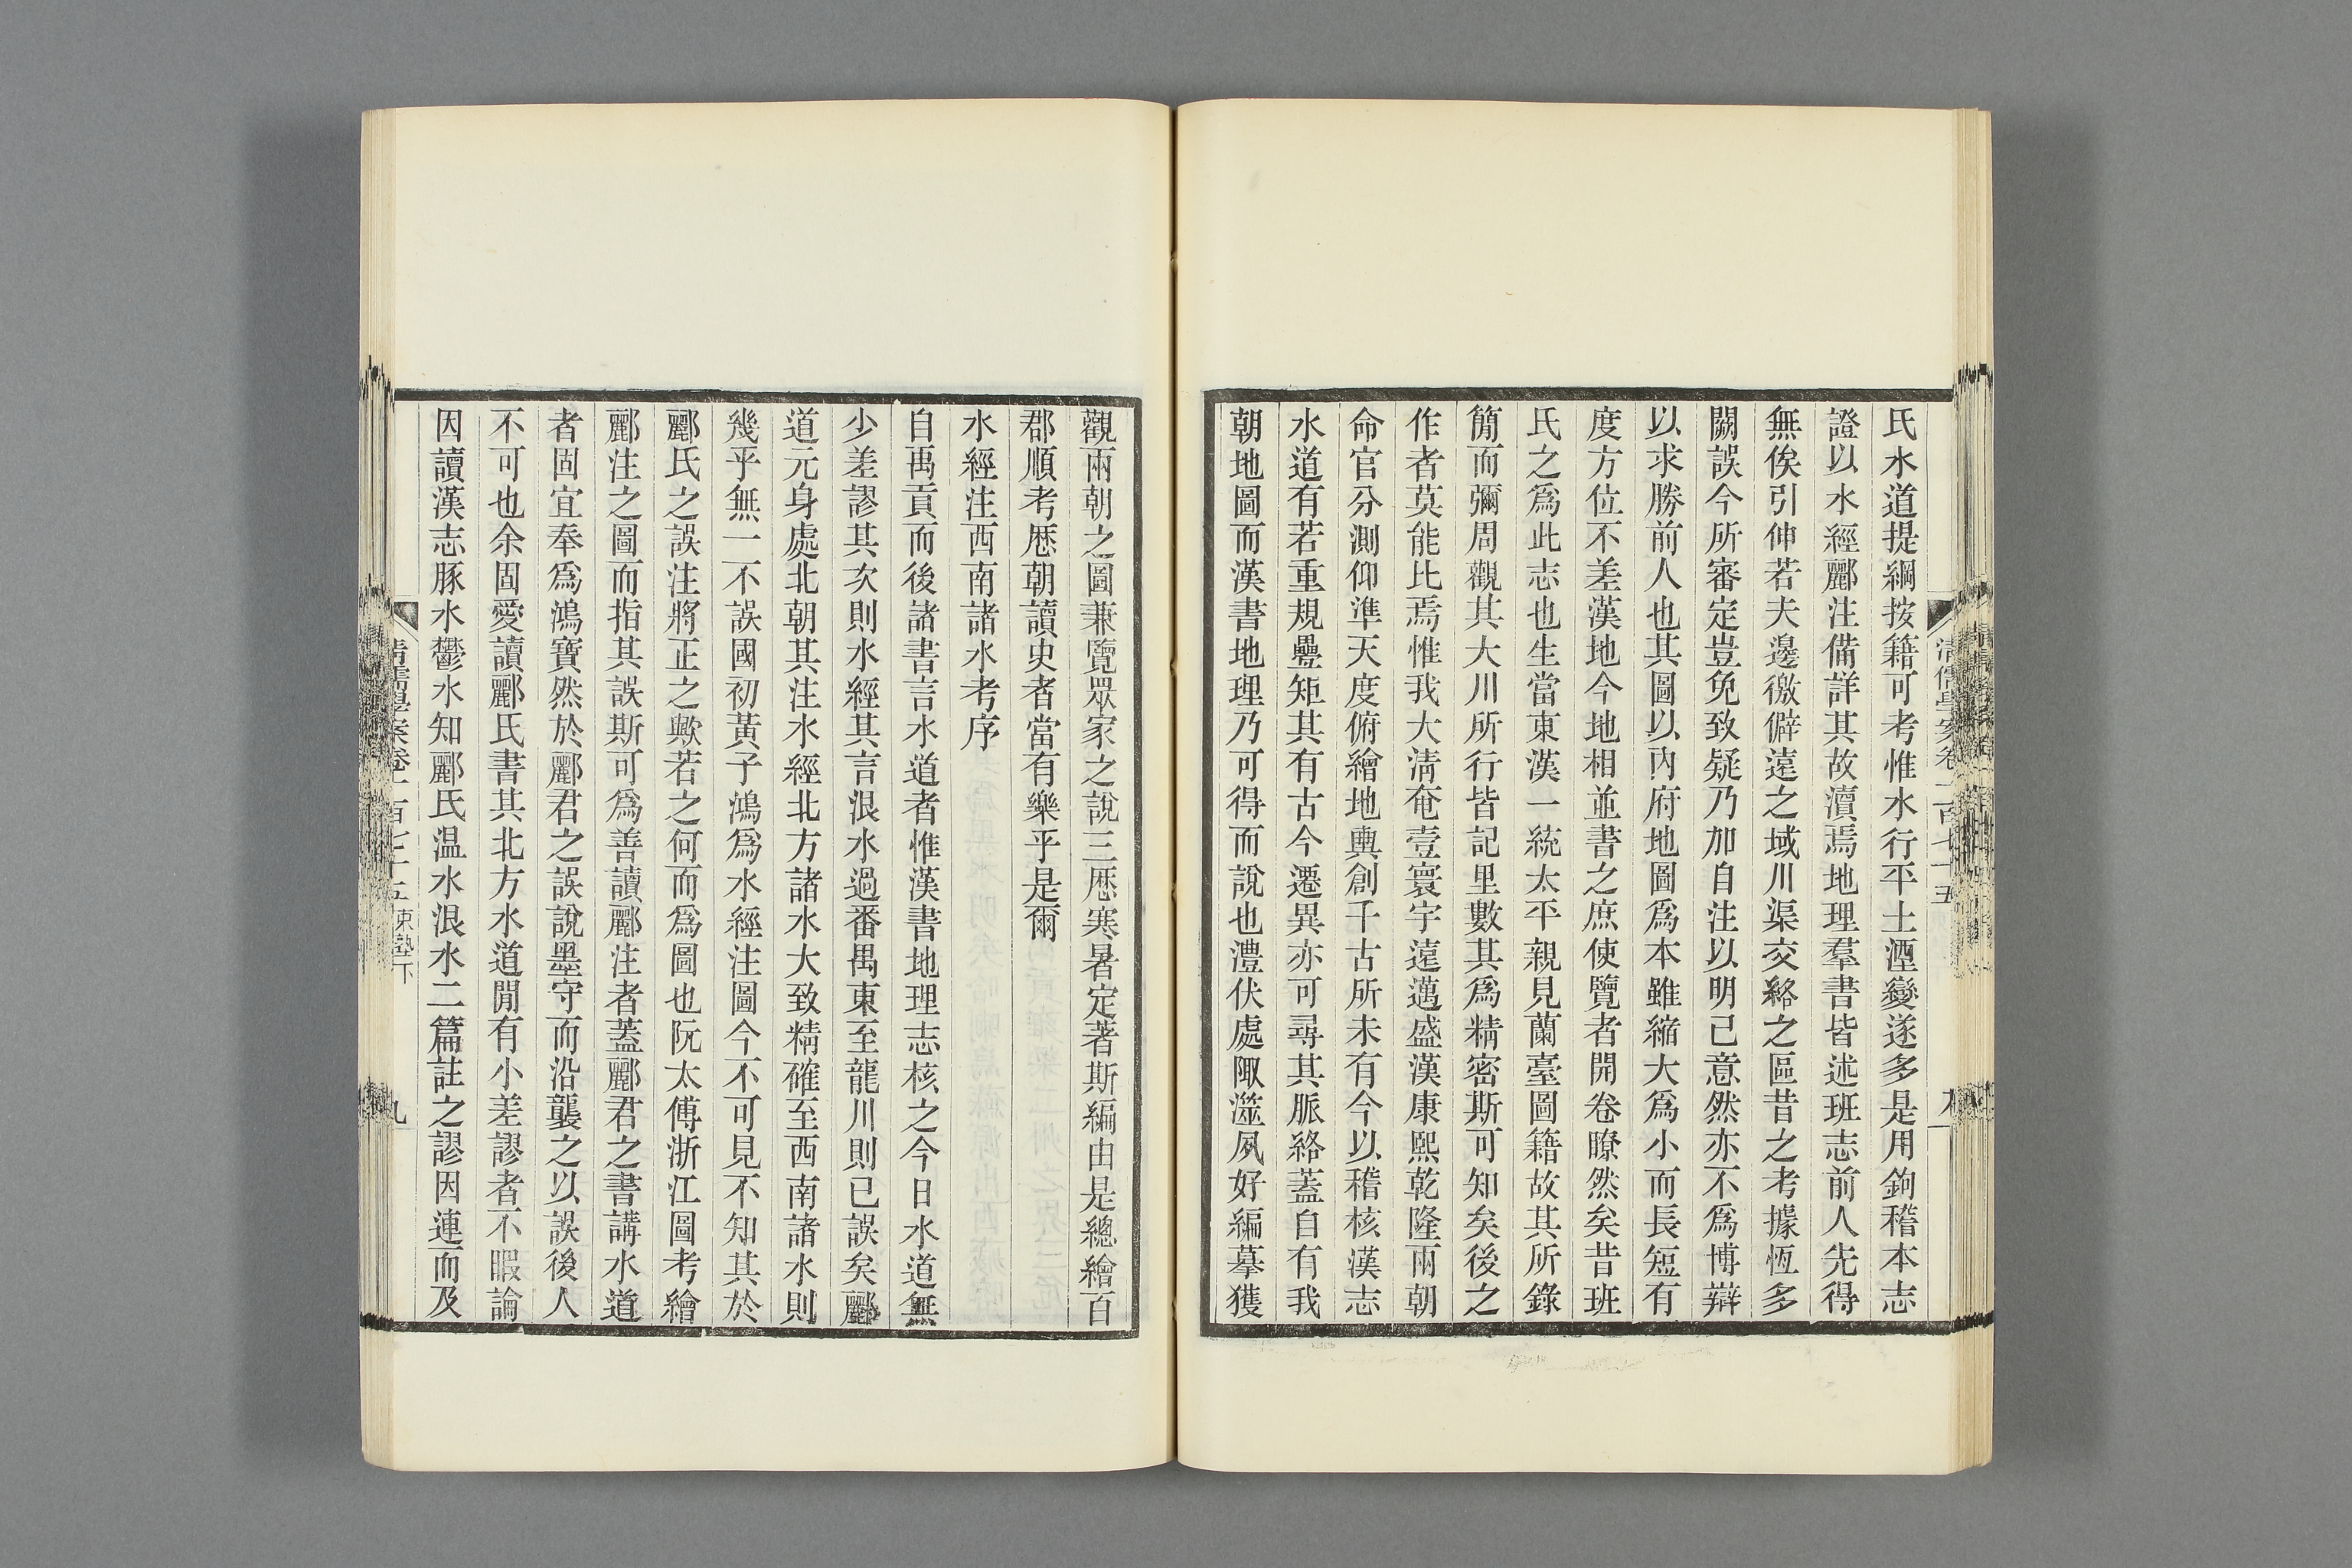 氏水道提綱按籍可考惟水行平土湮變遂多是用鉤稽本志
證以水經酈注備詳其故瀆焉地理羣書皆述班志前人先得
無俟引伸若夫邊徼僻遠之域川渠交絡之區昔之考據恆多
闕誤今所審定豈免致疑乃加自注以明己意然亦不爲博辯
以求勝前人也其圖以內府地圖爲本雖縮大爲小而長短有
度方位不差漢地今地相並書之庶使覽者開卷瞭然矣昔班
氏之爲此志也生當東漢一統太平親見蘭臺圖籍故其所錄
簡而彌周觀其大川所行皆記里數其爲精密斯可知矣後之
作者莫能比焉惟我大淸奄壹寰宇遠邁盛漢康熙乾隆兩朝
命官分測仰準天度俯繪地輿創千古所未有今以稽核漢志
水道有若重規疊矩其有古今遷異亦可尋其脈絡蓋自有我
朝地圖而漢書地理乃可得而說也澧伏處陬澨夙好編摹獲
觀兩朝之圖兼覽眾家之說三厯寒暑定著斯編由是總繪百
郡順考厯朝讀史者當有樂乎是爾
水經注西南諸水考序
自禹貢而後諸書言水道者惟漢書地理志核之今日水道無
少差謬其次則水經其言浪水過番禺東至龍川則已誤矣酈
道元身處北朝其注水經北方諸水大致精確至西南諸水則
幾乎無一不誤國初黃子鴻爲水經注圖今不可見不知其於
酈氏之誤注將正之歟若之何而爲圖也阮太傅浙江圖考繪
酈注之圖而指其誤斯可爲善讀酈注者蓋酈君之書講水道
者固宜奉爲鴻寶然於酈君之誤說墨守而沿襲之以誤後人
不可也余固愛讀酈氏書其北方水道閒有小差謬者不暇論
因讀漢志豚水鬱水知酈氏温水浪水二篇註之謬因連而及
清儒學案卷一百七十五 東塾下
九